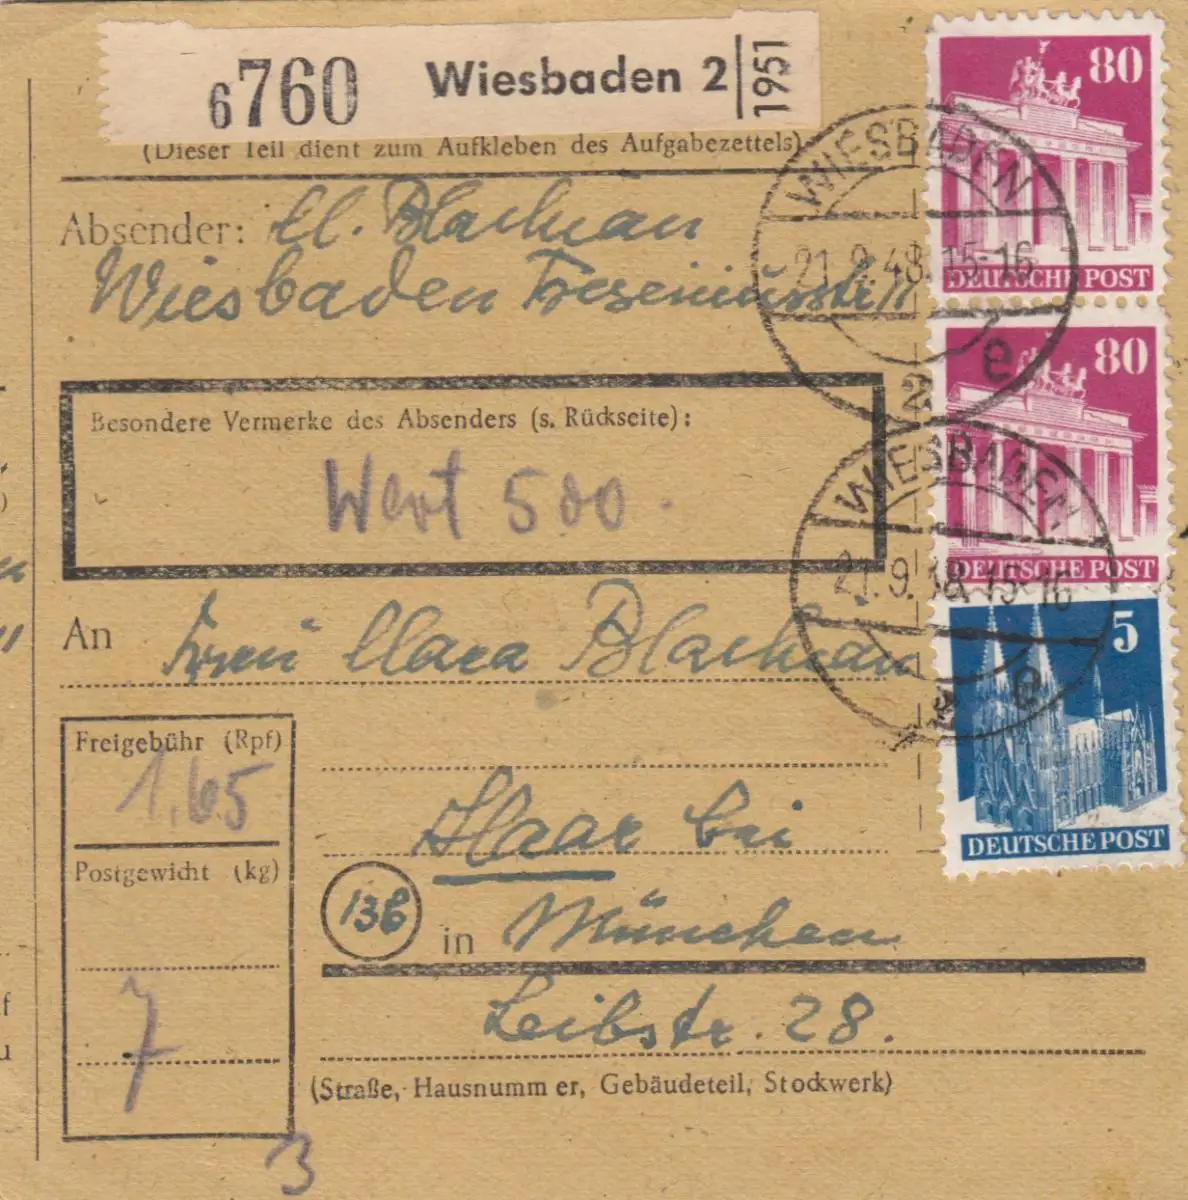 6760 Wiesbaden 2 1951
(Dieser Teil dient zum Aufkleben des Aufgabezettels)
Absender: Cl. Blachian
Wiesbaden
Besondere Vermerke des Absenders (s. Rückseite):
Wert 500.
An Frau Clara Blachian
Freigebühr (Rpf)
1,65
Postgewicht (kg)
7
3
Haar bei
13b in München
Leibstr. 28.
(Straße, Hausnummer, Gebäudeteil, Stockwerk)
80
DEUTSCHE POST
80
DEUTSCHE POST
5
DEUTSCHE POST
WIESBADEN
21.9.48.15-16
e
2
WIESBADEN
21.9.48.15-16
e
2